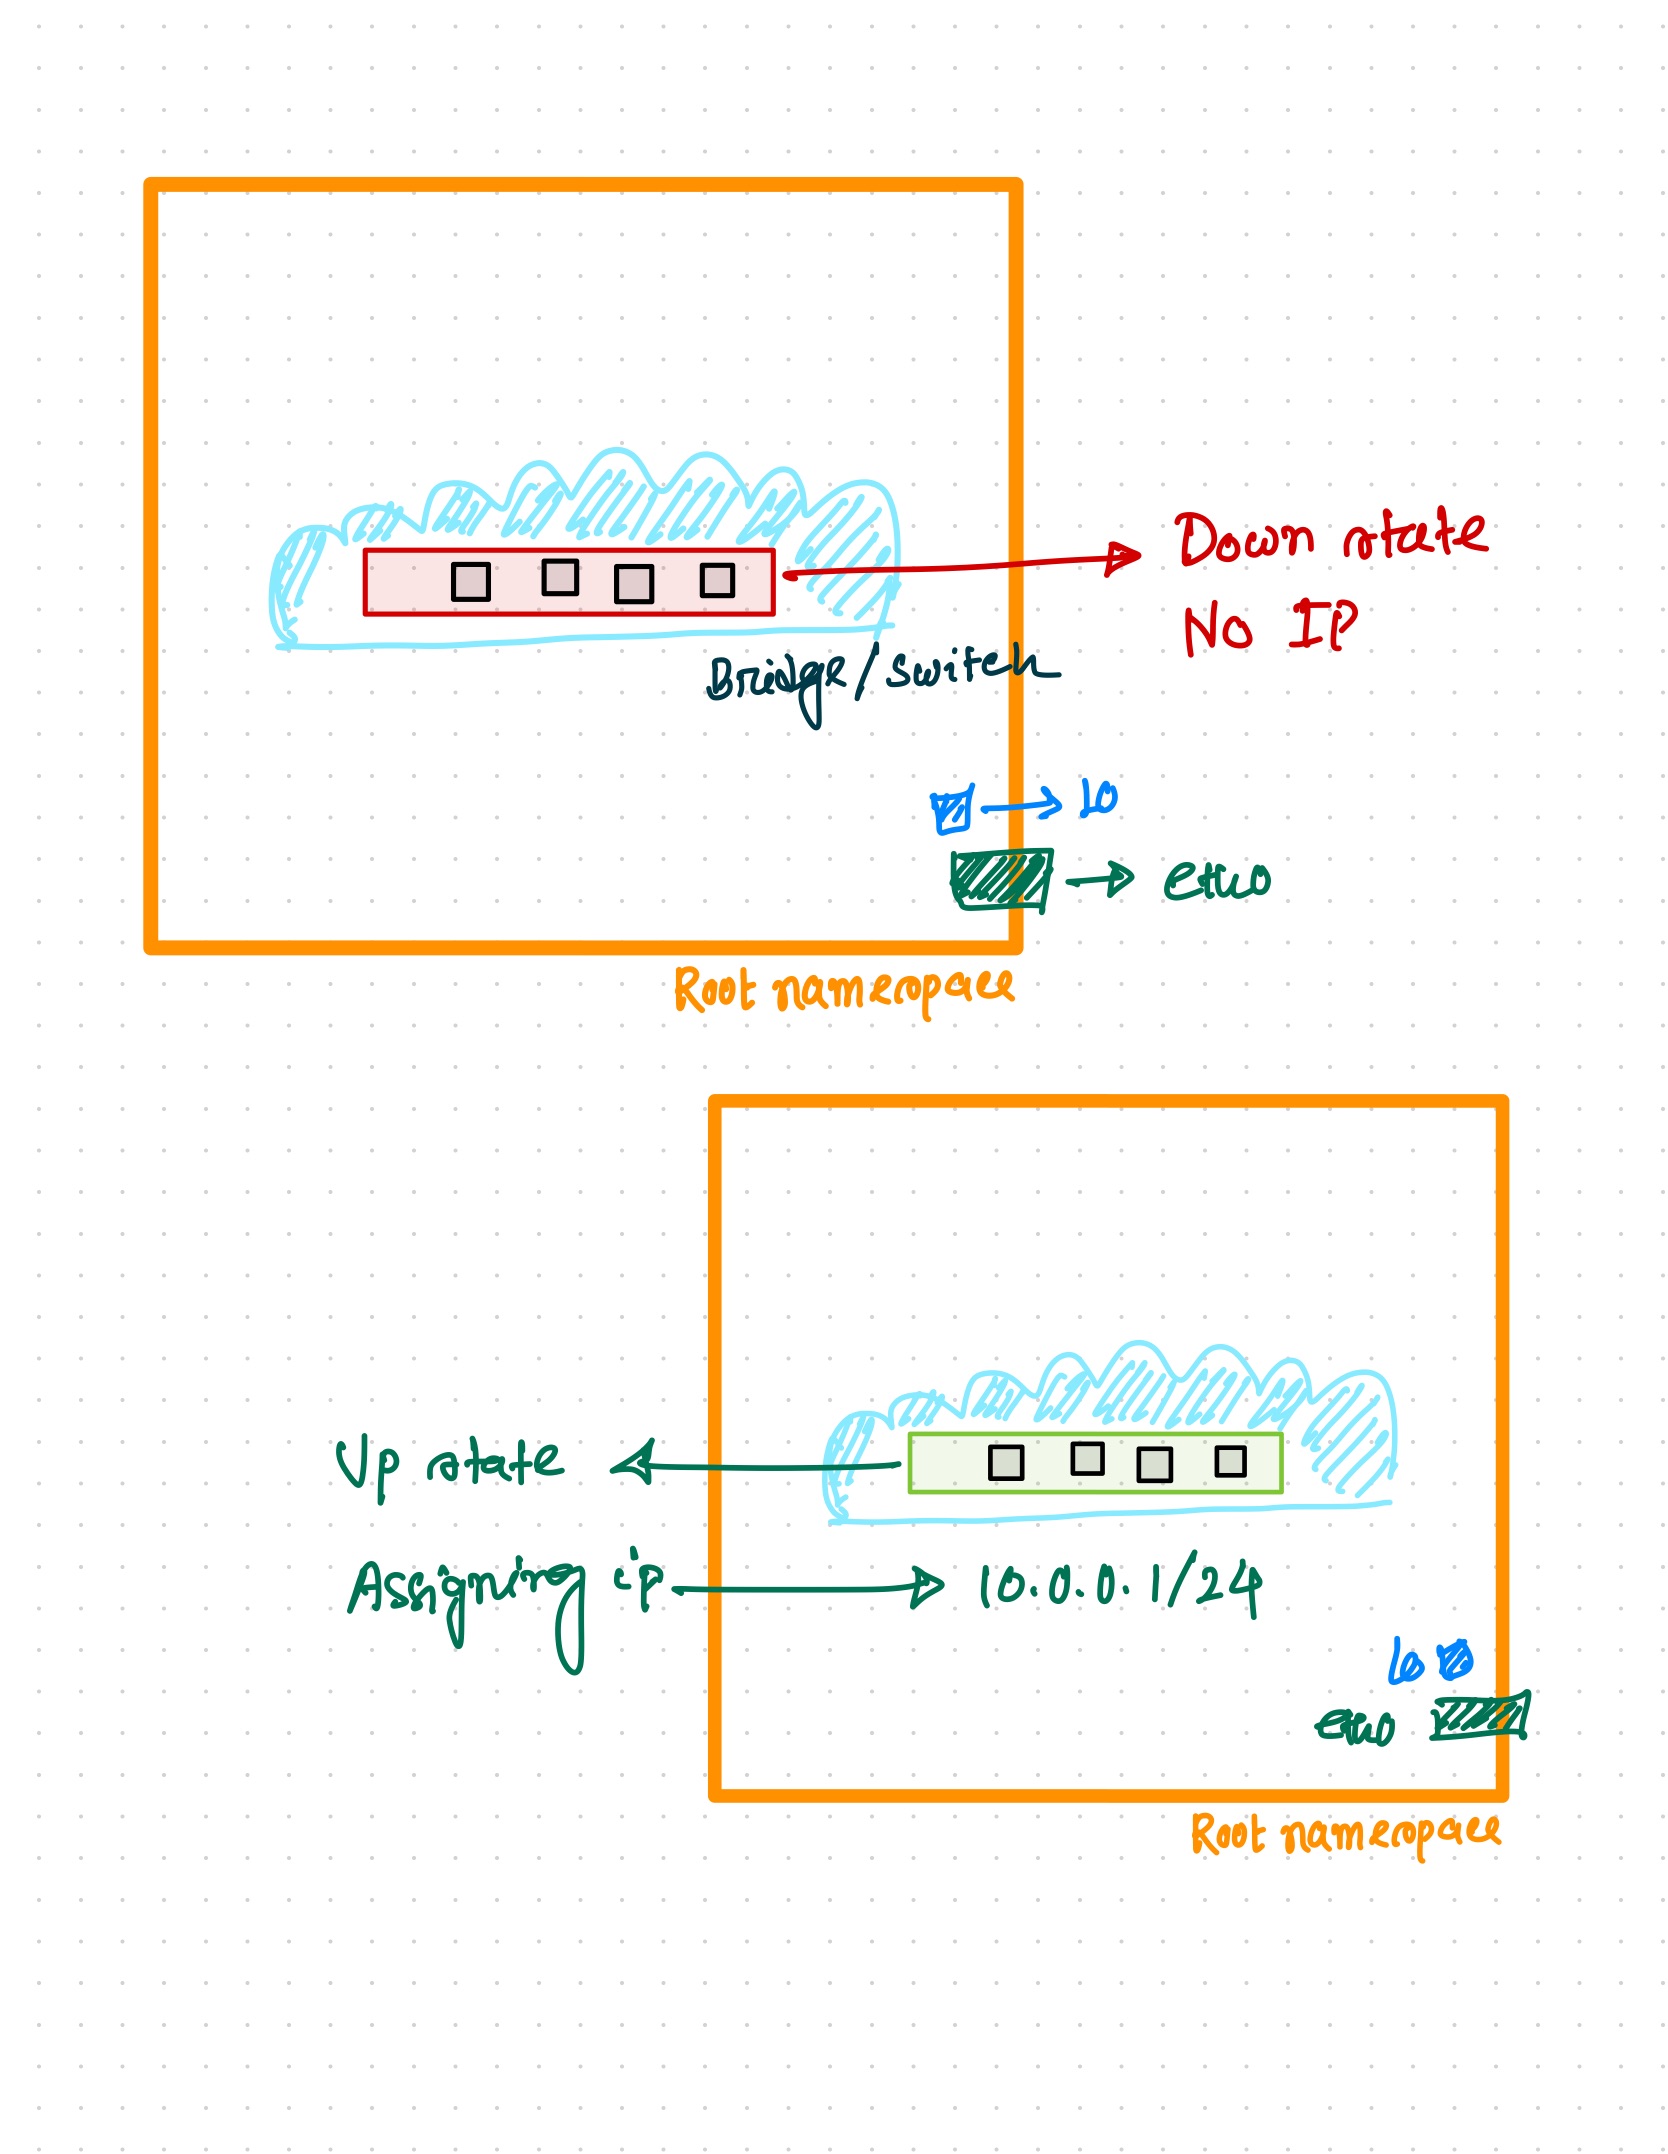 Down state
No IP
Bridge/switch
lo
eth0
Root namespace
Up state
Assigning ip
10.0.0.1/24
lo
eth0
Root namespace